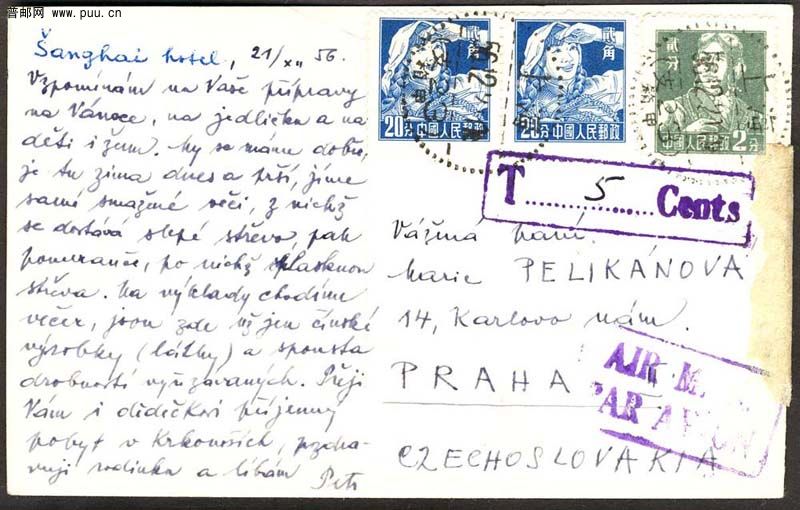 普邮网
www.puu.cn
Šanghai hotel, 21/XII 56.
Vzpomínám na Vaše přípravy
na Vánoce, na jedličku a na
děti i zum. My se máme dobře,
je tu zima dnes a prší, jíme
samé smažené věci, z nichž
se dostává slepé střevo, pak
pomeranče, po nichž splasknou
střeva. Na výklady chodíme
večer, jsou zde už jen čínské
výrobky (látky) a spousta
drobností vyřezávaných. Přeji
Vám i dědečkovi příjemný
pobyt v Krkonoších, pozdra-
vuji rodinku a líbám Petr
貳角
20分中國人民郵政
貳角
20分中國人民郵政
貳分
中國人民郵政2分
T 5 Cents
Vážená paní
Marie PELIKÁNOVÁ
14, Karlovo nám.
PRAHA II
AIR M
PAR AVION
CZECHOSLOVAKIA